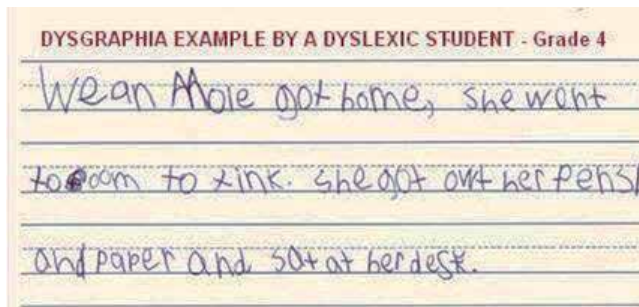 DYSGRAPHIA EXAMPLE BY A DYSLEXIC STUDENT - Grade 4
Wean Mole got home, she went
to room to tink. she got out her pens
and paper and sat at her desk.